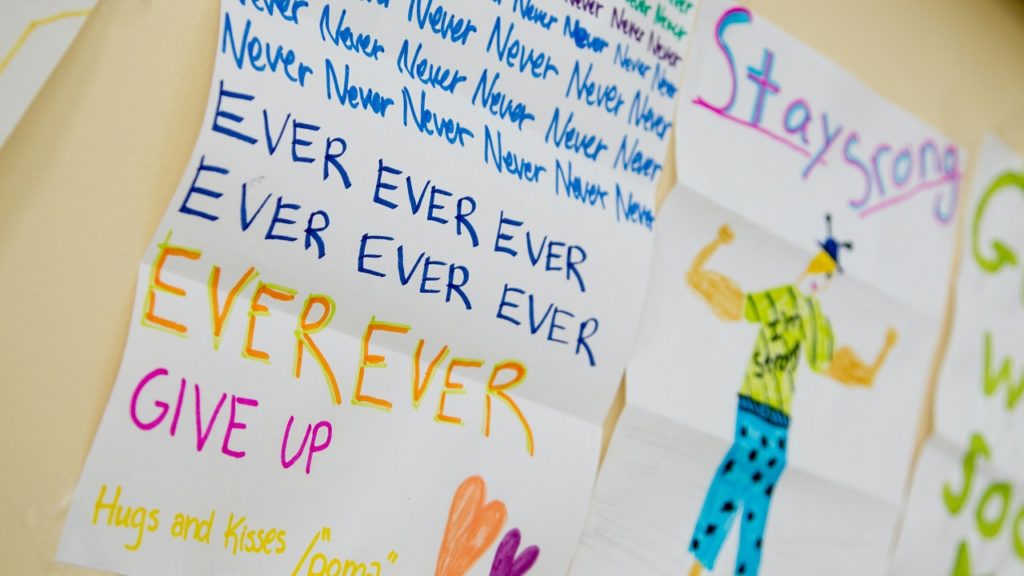 Never
Never
Never Never Never
Never Never Never Never
Never Never Never Never
Never Never Never Never Never Never
Never Never Never Never Never Never
EVER EVER EVER
EVER EVER EVER
EVER EVER
GIVE UP
Hugs and Kisses /"poma"
Stay Srong
I'm
strong